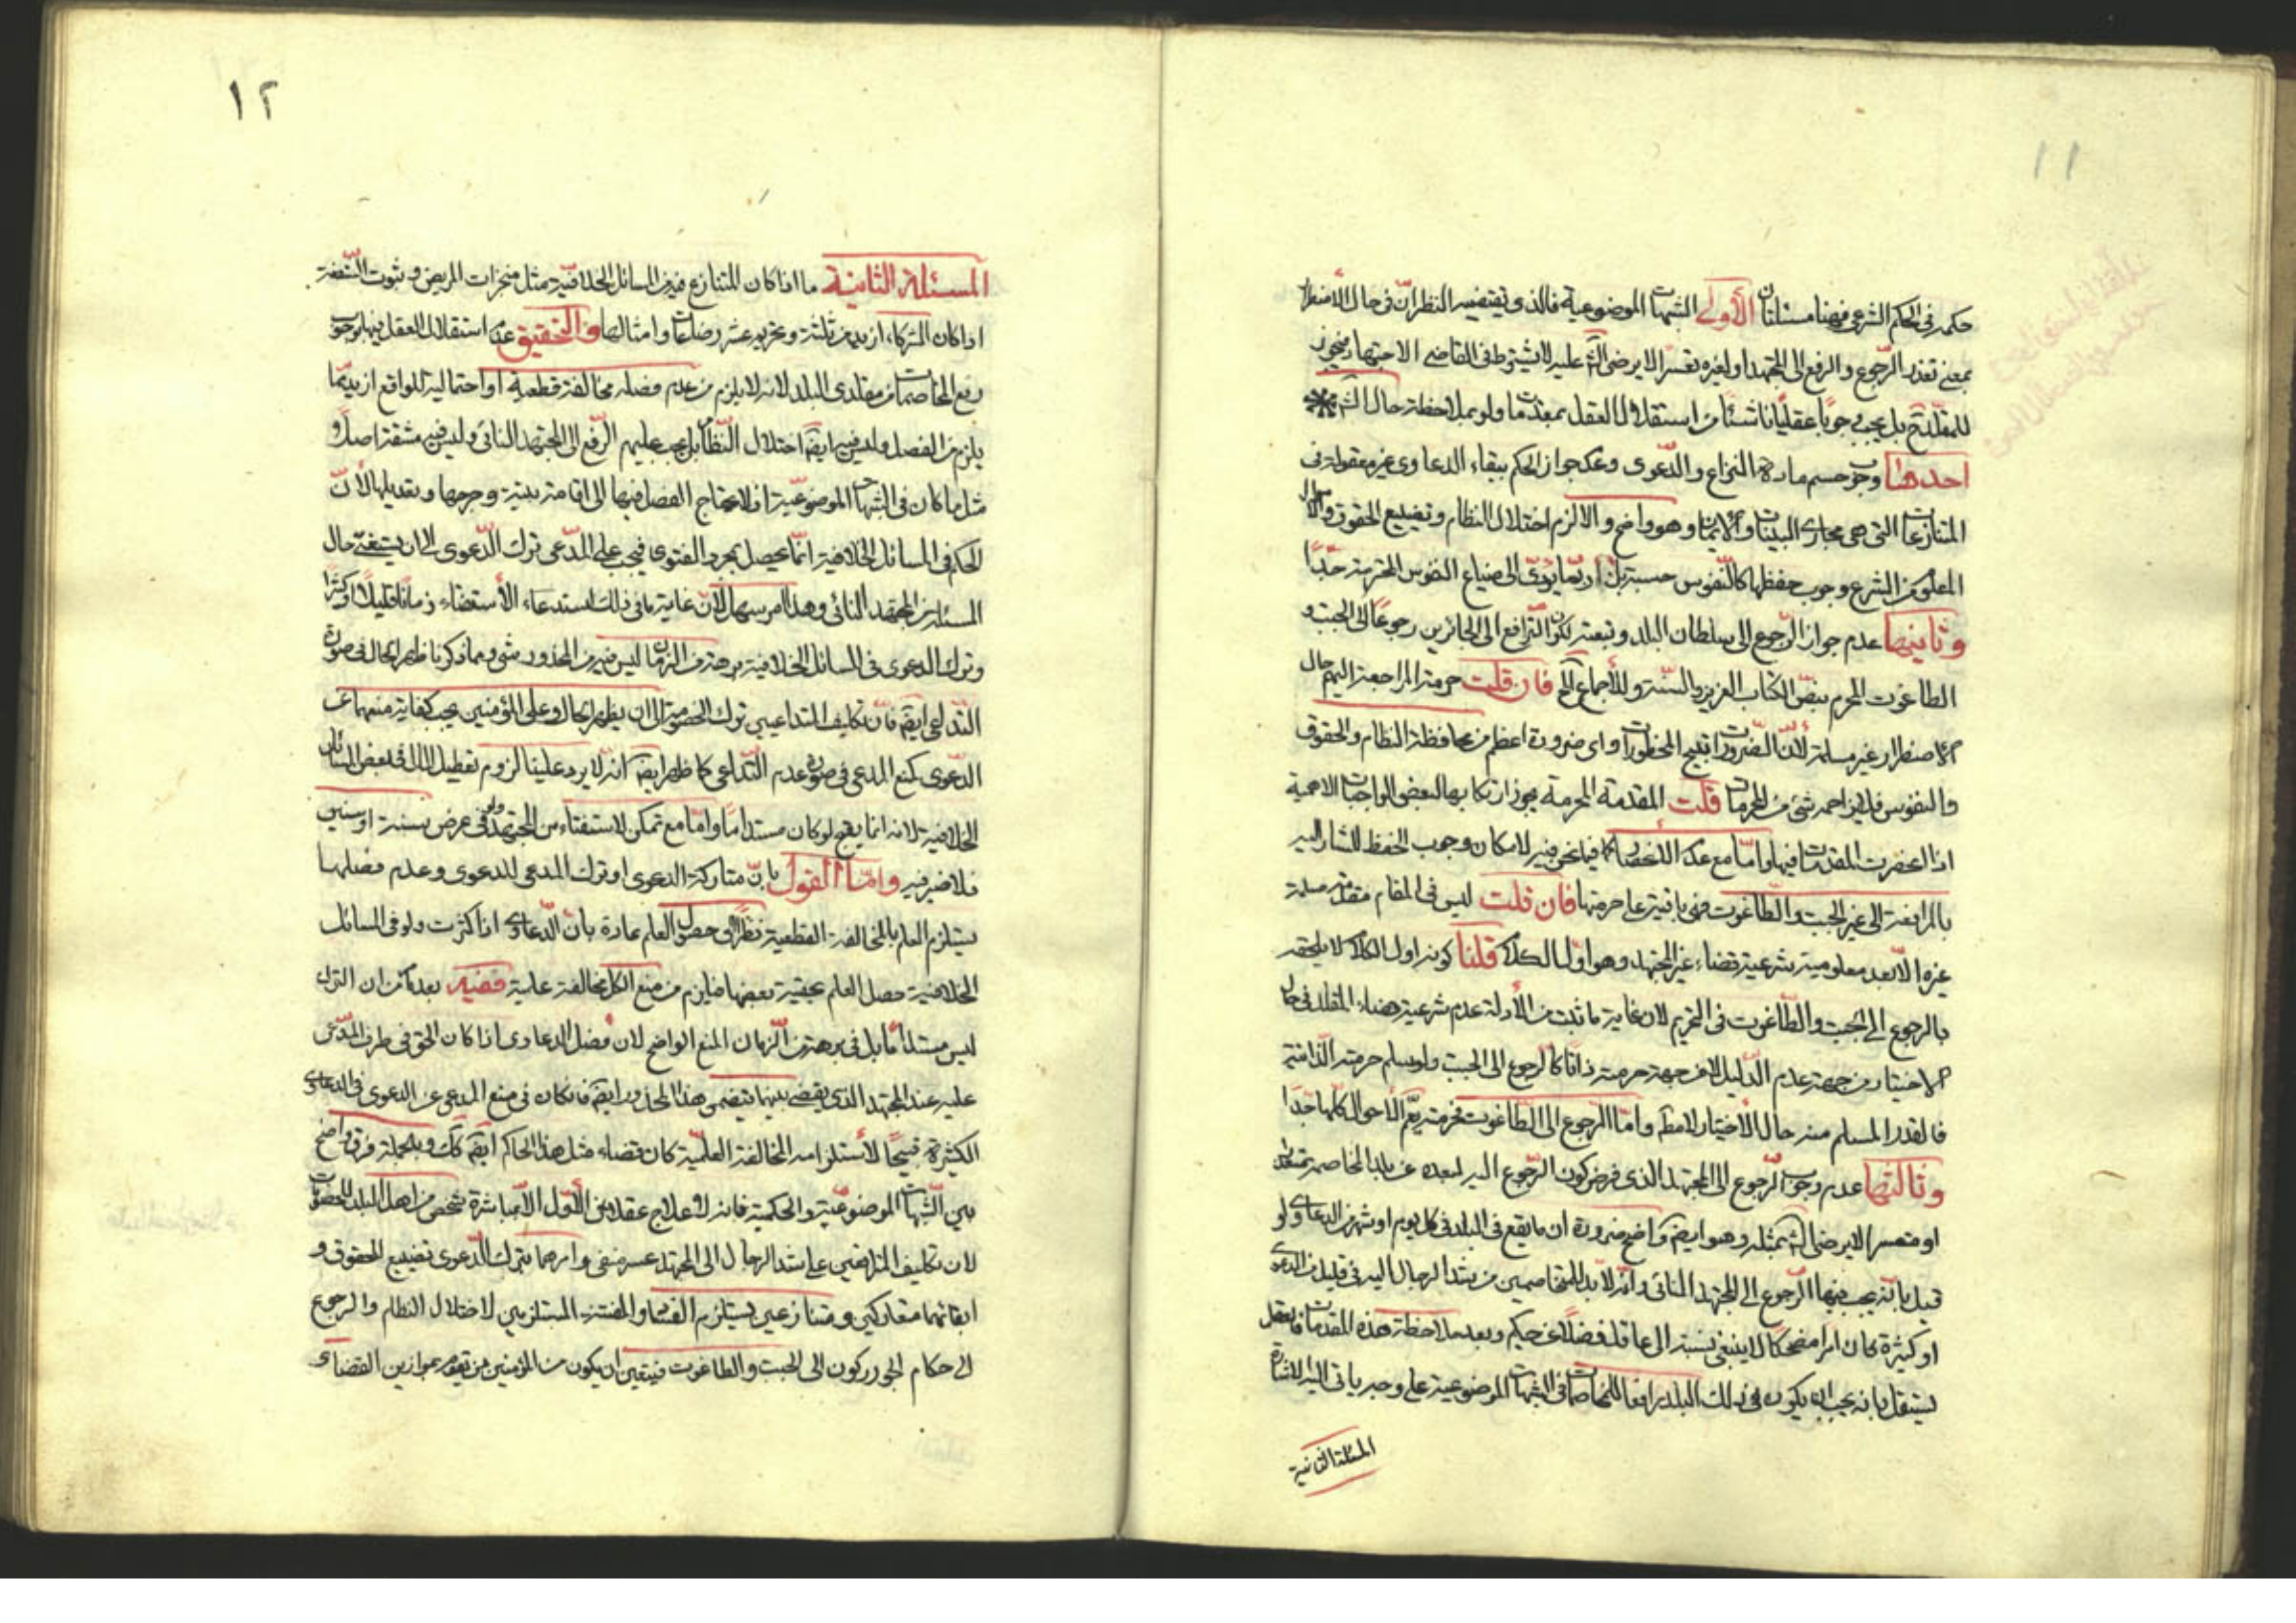 ١١
حكمه في الحكم الشرعي فهنا مسئلتان الأولى الشبهات الموضوعية فالذي يقتضيه النظر ان في حال الاضطرار
بمعنى تعذر الرّجوع والرفع الى المجتهد او لغيره تعسّرا لا يرضى الشّ عليه لا يشترط في القاضي الاجتهاد فيجوز
للمقلّد بل يجب وجوبًا عقليّا ناشئا من استقلال العقل بمقدمات ولو بملاحظة حال الش
احدها وجوب حسم مادة النزاع والدّعوى وعدم جواز الحكم ببقاء الدعاوى غير معقولة في
المتنازعات التي هي مجارى البينات والايمان وهو واضح والا لزم اختلال النظام وتضييع الحقوق والاموال
المعلوم من الشرع وجوب حفظها كالنّفوس حسبة بل ربّما يؤدّى الى ضياع النفوس المحترمة جدّا
وثانيها عدم جواز الرّجوع الى سلطان البلد وتبعته لكون التّرافع الى الجائرين رجوعًا الى الجبت و
الطاغوت المحرم بنصّ الكتاب العزيز والسّنة والأجماع فان قلت حرمة المراجعة اليهم حال
الاضطرار غير مسلمة لأنّ الضّرورات تبيح المحظورات واى ضرورة اعظم من محافظة النظام والحقوق
والنفوس فلا يزاحمه شئ من المحرمات قلت المقدمة المحرمة يجوز ارتكابها لبعض الواجبات الاهمية
اذا انحصرت المقدمات فيها وامّا مع عدم الانحصار كما فيما نحن فيه لامكان وجوب الحفظ المشار اليه
بالمرافعة الى غير الجبت والطّاغوت فهى باقية على حرمتها فان قلت ليس في المقام مقدمة مسلمة
غيره الّا بعد معلومية شرعية قضاء غير المجتهد وهو اوّل الكلام قلنا كونه اول الكلام لا يلحقه
بالرجوع الى الجبت والطّاغوت في التحريم لان غاية ما ثبت من الأدلة عدم شرعية قضاء المقلد في حال
الاختيار من جهة عدم الدّليل لا من جهة حرمته ذاتا كالرجوع الى الجبت ولو سلم حرمته الذاتية
فالقدر المسلم منه حال الأختيار لا مطلقا وامّا الرجوع الى الطّاغوت فحرمته يعمّ الاحوال كلها جدّا
وثالثها عدم وجوب الرّجوع الى المجتهد الذى فرض كون الرّجوع اليه لبعده عن بلد المخاصم متعذر
او متعسرا لا يرضى الش بمثله وهو ايضا واضح ضرورة ان ما يقع في البلد في كل يوم او شهر من الدعاوى ولو
قيل بانّه يجب فيها الرّجوع الى المجتهد النائى وانّه لا بد للمتخاصمين من شد الرحال اليه في قليل من الدعوى
او كثيرة كان امرا مضحكا لا ينبغى نسبته الى عاقل فضلا عن حكيم وبعد ملاحظة هذه المقدمات فالعقل
يستقل بانه يجب ان يكون في ذلك البلد رافعا للمخاصمات في الشبهات الموضوعية على وجه ياتى اليه الاشارة
المسئلة الثانية
١٢
المسئلة الثانية ما اذا كان المتنازع فيه من المسائل الخلافيّة مثل منجزات المريض وثبوت الشفعة
اذا كان الشركاء ازيد من ثلثة وتحريم عشر رضعات وامثالها فالتحقيق عدم استقلال العقل فيها بوجوب
رفع المخاصمات من مقلدى البلد لانه لا يلزم من عدم فصله مخالفة قطعية او احتمالية للواقع ازيد ممّا
يلزم من الفصل وليس فيه ايضا اختلال النّظام بل يجب عليهم الرّفع الى المجتهد النائى وليس فيه مشقة اصلا و
مثل ما كان في الشبهات الموضوعيّة اذ لا يحتاج الفصل فيها الى اقامة بينة وجرحها وتعديلها لأنّ
الحكم في المسائل الخلافية انّما يحصل بمجرد الفتوى فيجب على المدّعى ترك الدّعوى الى ان يستفتى حال
المسئلة من المجتهد النائى وهذا امر سهل لانّ غاية ما في ذلك استدعاء الأستقضاء زمانا قليلا او كثيرا
وترك الدعوى في المسائل الخلافية برهة من الزمان ليس فيه من المحذور شئ ومما ذكرنا ظهر الحال في صورة
التّداعى ايضا فانّ تكليف المتداعيين ترك الخصومة الى ان يظهر الحال وعلى المؤمنين يجب كفاية منعهما عن
الدّعوى كمنع المدعى في صورة عدم التّداعى كما ظهر ايضا انه لا يرد علينا لزوم تعطيل المال في بعض المسائل
الخلافية لانه انما يقبح لو كان مستداما وامّا مع تمكن الاستفتاء من المجتهد ولو في عرض سنة او سنين
فلا ضير فيه وامّا القول بانّ متاركة الدعوى او ترك المدعى للدعوى وعدم فصلها
يستلزم العلم بالمخالفة القطعية نظرا الى حصول العلم عادة بان الدّعاوى اذا كثرت ولو في المسائل
الخلافية حصل العلم بحقية بعضها فيلزم من منع الكل مخالفة علمية ففيه بعد ما مرّ ان الترك
ليس مستداما بل في برهة من الزمان المنع الواضح لان فصل الدعاوى اذا كان الحق في طرف المدّعى
عليه عند المجتهد الذى يقضى بينهما يتضمن هذا المحذور ايضا فان كان في منع المدعى عن الدعوى في الدعاوى
الكثيرة قبيحًا لأستلزامه المخالفة العلميّة كان قضاء مثل هذا الحاكم ايضا كك وبالجملة فرق واضح
بين الشّبهات الموضوعيّة والحكمية فانه لا علاج عقلا من الأوّل الّا بمباشرة شخص من اهل البلد للخصومات
لان تكليف المترافعين على شد الرحال الى المجتهد عسر منفى وامرهما بترك الدّعوى تضييع للحقوق و
ابقائهما متعاركين ومتنازعين يستلزم الفساد والفتنة المستلزمين لاختلال النظام والرجوع
الى حكام الجور ركون الى الجبت والطاغوت فيتعين ان يكون من المؤمنين من يقوم بموازين القضاء